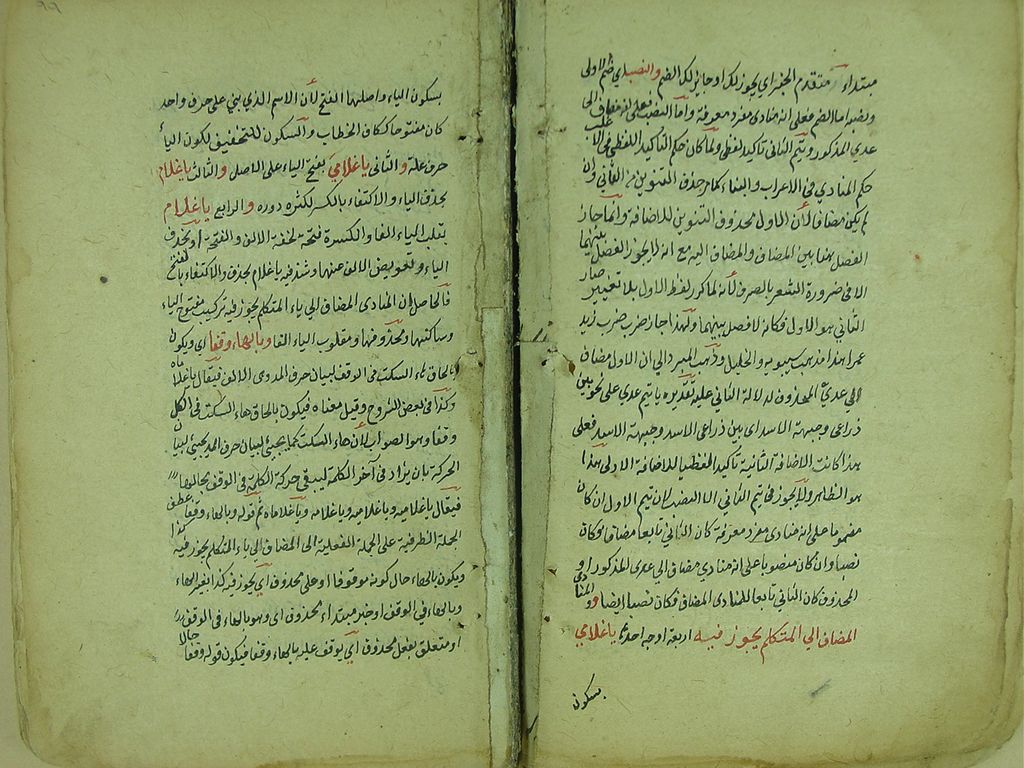 مبتداء متقدم الخبر اي يجوز لك او جايز لك الضم والنصب اي ضم الاولى
ونصبه اما الضم فعلى انه منادى مفرد معرفة واما النصب فعلى انه مضاف الى
عدي المذكور وتيم الثانى تاكيد لفظى ولما كان حكم التاكيد اللفظى فى الاغلب
حكم المنادى فى الاعراب والبناء كما مر حذف التنوين من الثانى وان
لم يكن مضافا لان الاول محذوف التنوين للاضافة وانما جاز
الفصل بهنا بين المضاف والمضاف اليه مع انه لا يجوز الفصل بينهما
الا فى ضرورة الشعر بالصرف لانه لما كرر لفظ الاول بلا تغيير صار
الثانى هو الاول فكانه لا فصل بينهما ولهذا جاز ضرب ضرب زيد
عمرا هذا مذهب سيبويه والخليل وذهب المبرد الى ان الاول مضاف
الى عدي المحذوف لدلالة الثانى عليه تقديره يا تيم عدي على نحو بين
ذراعى وجبهة الاسد اى بين ذراعى الاسد وجبهة الاسد فعلى
هذا كانت الاضافة الثانية تاكيدا لفظيا للاضافة الاولى هذا
هو الظاهر ولا يجوز فى تيم الثانى الا النصب لان تيم الاول ان كان
مضموما على انه منادى مفرد معرفة كان الثانى تابعا مضافا فكان
نصبا وان كان منصوبا على انه منادى مضاف الى عدي المذكور او
المحذوف كان الثانى تابعا للمنادى المضاف فكان نصبا ايضا و المنادى
المضاف الى المتكلم يجوز فيه اربعة اوجه احدها يا غلامي
بسكون
بسكون الياء واصلها الفتح لان الاسم الذي بني على حرف واحد
كان مفتوحا ككاف الخطاب والسكون للتخفيف لكون الياء
حرف علة والثانى يا غلامي بفتح الياء على الاصل والثالث يا غلام
بحذف الياء والاكتفاء بالكسر لكثرة دوره والرابع يا غلاما
بقلب الياء الفا والكسرة فتحة لخفة الالف والفتحة او بحذف
الياء وتعويض الالف عنها وشذ فيه يا غلام بحذف والاكتفاء بالفتح
فالحاصل ان المنادى المضاف الى ياء المتكلم يجوز فيه تركيب مفتوح الياء
وساكنها ومحذوفها ومقلوب الياء الفا وبالهاء وقفا اي ويكون
بالحاق هاء السكت فى الوقف لبيان حرف المد وهى الالف فيقال يا غلاماه
وكذا فى بعض الشروح وقيل معناه فيكون بالحاق هاء السكت فى الكل
وقفا وهو الصواب لان هاء السكت كما يجيئ لبيان حرف المد يجيئ لبيان
الحركة بان يزاد فى آخر الكلمة ليبقى حركة الكلمة فى الوقف بحالها
فيقال يا غلاميه ويا غلاميه ويا غلامه ويا غلاماه ثم قوله وبالهاء وقفا عطف
الجملة الظرفية على الجملة الفعلية اى المضاف الى ياء المتكلم يجوز فيه كذا
ويكون بالهاء حال كونه موقوفا او على محذوف اي يجوز فيه كذا بغير الهاء
وبالهاء في الوقف او خبر مبتداء محذوف اى وهو بالهاء فى الوقف
او متعلق بفعل محذوف اي يوقف عليه بالهاء وقفا فيكون قوله وقفا حالا